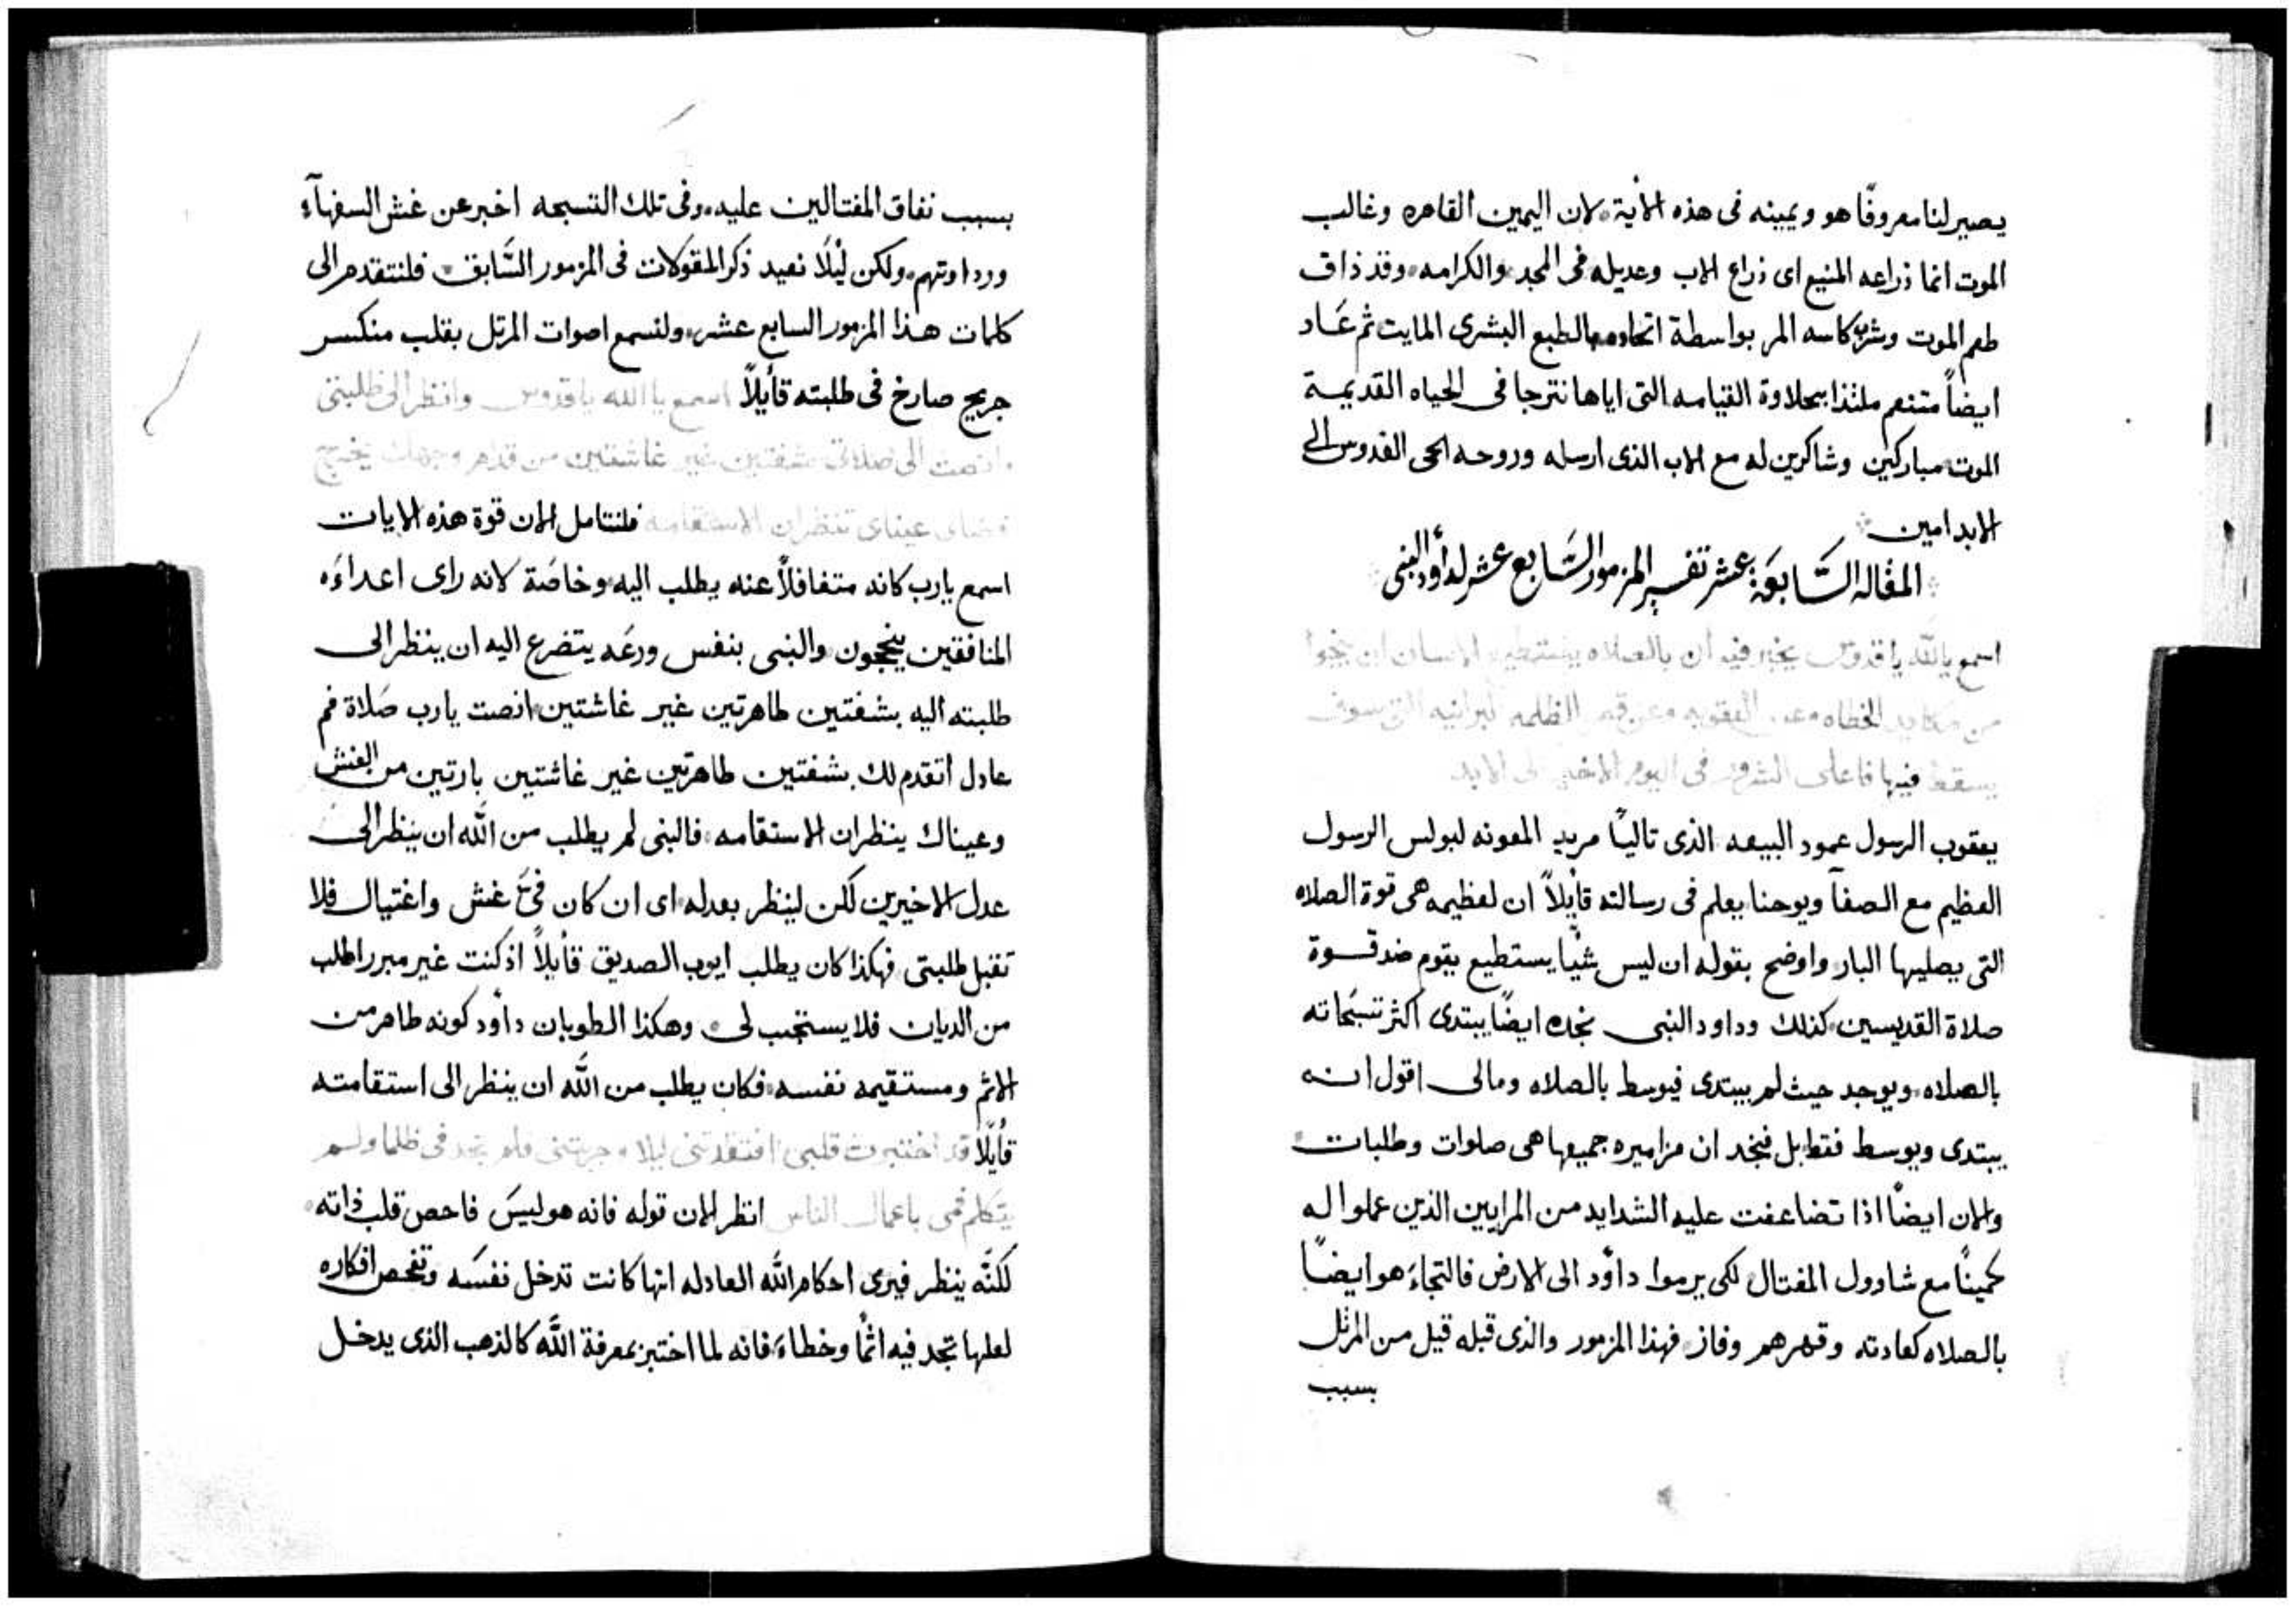 يصير لنا معروفًا هو ويمينه فى هذه الاية لان اليمين القاهره وغالب
الموت انما ذراعه المنيع اى ذراع الاب وعديله فى المجد والكرامه وقد ذاق
طعم الموت وشرب كاسه المر بواسطة اتحاده بالطبع البشرى المايت ثم عَاد
ايضاً متنعم ملتذا بحلاوة القيامه التى اياها نترجا فى الحياه القديمة
الموت مباركين وشاكرين له مع الاب الذى ارسله وروحه الحى القدوس الى
الابد امين
المقاله السَّابعَة عشر تفسير المزمور السَّابع عشر لداود النبى
اسمع يا الله يا قدوس يخبر فيه ان بالصلاه يستطيع الانسان ان ينجوا
من مكايد الخطاه وعن العقوبه وعن الظلمه البرانيه التى سوف
يسقط فيها فاعلى الشرور فى اليوم الاخير الى الابد
يعقوب الرسول عمود البيعه الذى تاليًا مريد المعونه لبولس الرسول
العظيم مع الصفآ ويوحنا يعلم فى رسالته قايلاً ان لعظيمه هى قوة الصلاه
التى يصليها البار واوضح بقوله ان ليس شيًا يستطيع يقوم ضد قوة
صلاة القديسين كذلك وداود النبى نجده ايضًا يبتدى اكثر تسبحاته
بالصلاه ويوجد حيث لم يبتدى فيوسط بالصلاه ومالى اقول انه
يبتدى ويوسط فقط بل فنجد ان مزاميره جميعها هى صلوات وطلبات
والان ايضًا اذا تضاعفت عليه الشدايد من المرايين الذين عملوا له
كمينًا مع شاوول المغتال لكى يرموا داوُد الى الارض فالتجاءَ هو ايضًا
بالصلاه كعادته وقهرهم وفاز فهذا المزمور والذى قبله قيل من المرتل
بسبب
بسبب نفاق المغتالين عليه وفى تلك التسبحه اخبر عن غش السفهآء
ورداوتهم ولكن ليْلَا نعيد ذكر المقولات فى المزمور السَّابق فلنتقدم الى
كلمات هذا المزمور السابع عشر ولنسمع اصوات المرتل بقلب منكسر
جريح صارخ فى طلبته قايلاً اسمع يا الله يا قدوس وانظر الى طلبتى
وانصت الى صلاتى بشفتين غير غاشتين من قدام وجهك يخرج
قضاى عيناى تنظران الاستقامه فلنتامل الان قوة هذه الايات
اسمع يارب كانه متغافلاً عنه يطلب اليه وخاصَة لانه راى اعداءَه
المنافقين ينجحون والنبى بنفس ورعَه يتضرع اليه ان ينظر الى
طلبته اليه بشفتين طاهرتين غير غاشتين انصت يارب صَلاة فم
عادل اتقدم لك بشفتين طاهرتين غير غاشتين بارتين من الغش
وعيناك ينظران الاستقامه فالنبى لم يطلب من الله ان ينظر الى
عدل الاخيرين لكن لينظر بعدله اى ان كان فىَّ غش واغتيال فلا
تقبل طلبتى فهكذا كان يطلب ايوب الصديق قايلاً اذ كنت غير مبرر اطلب
من الديان فلا يستجب لى وهكذا الطوبان داوُد كونه طاهر من
الاثم ومستقيمه نفسه فكان يطلب من الله ان ينظر الى استقامته
قايلًا قد اختبرت قلبى افتقدتنى ليلا جربتنى فلم تجد فى ظلما ولم
يتكلم فمى باعمال الناس انظر الان قوله فانه هو ليسَ فاحص قلب ذاته
لكنّه ينظر فيرى احكام الله العادله انها كانت تدخل نفسَه وتفحص افكاره
لعلها تجد فيه اثمًا وخطاءَ فانه لما اختبز بمعرفة الله كالذهب الذى يدخل